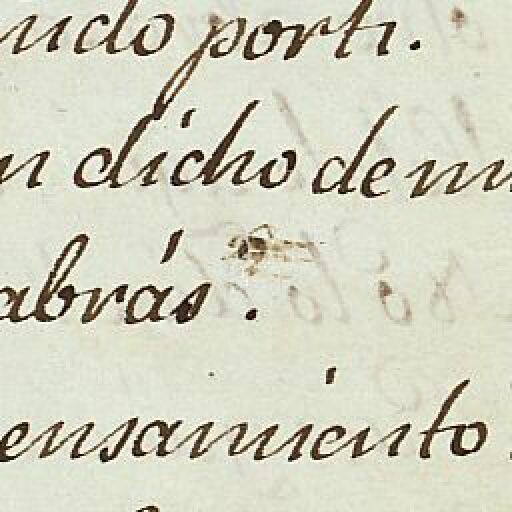 ndo por ti.
n dicho de mi
abrás.
ensamiento